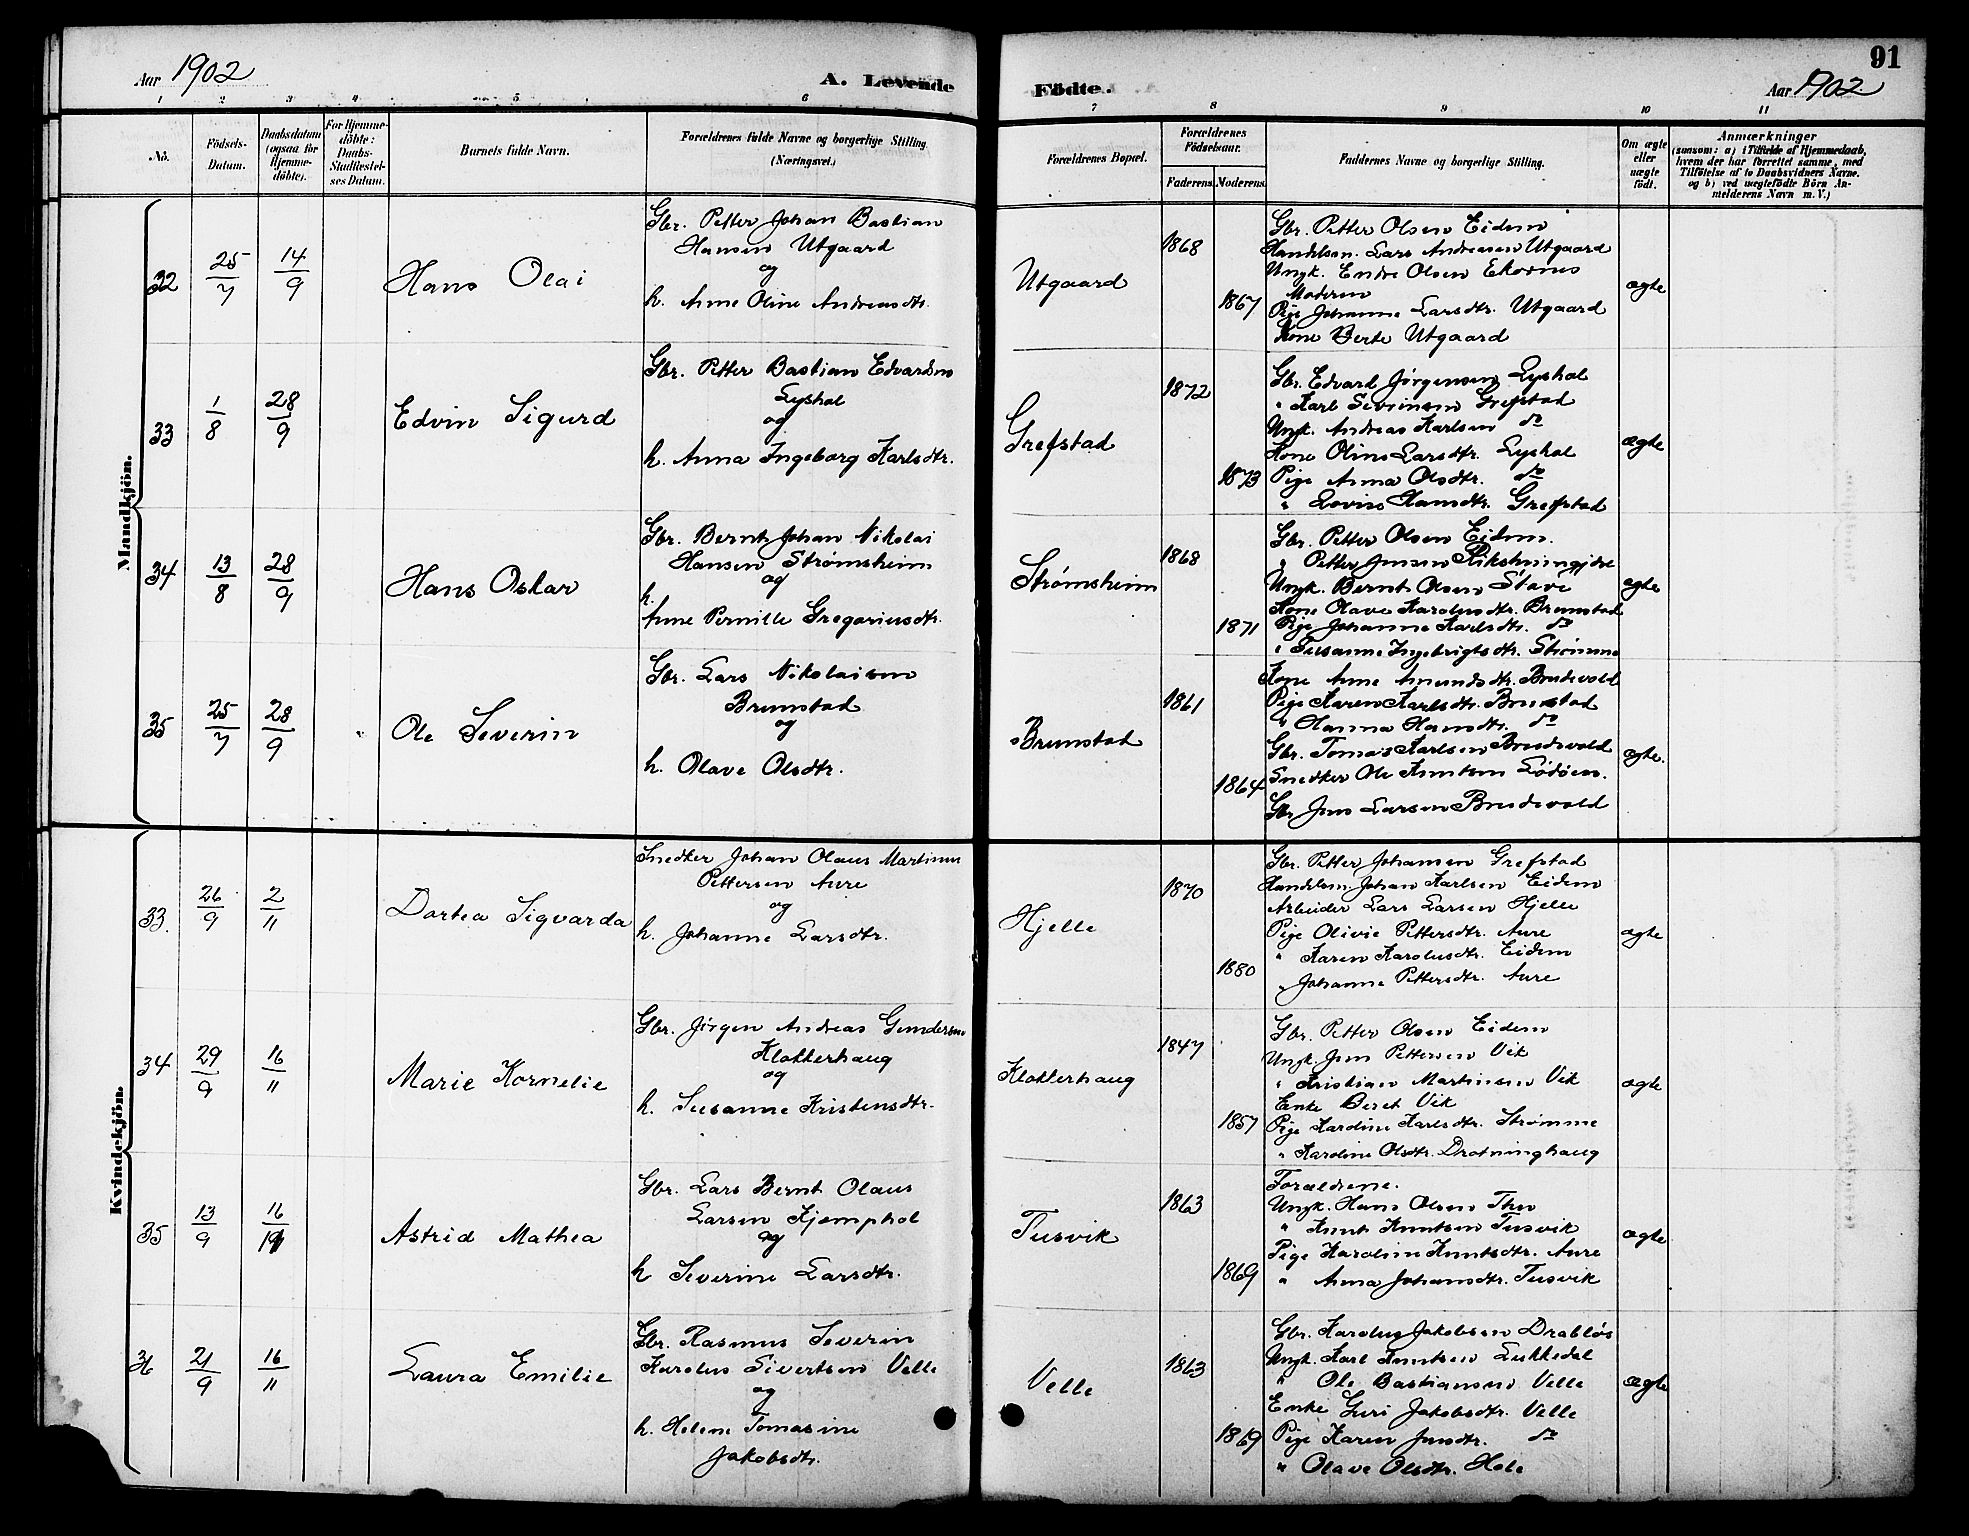 Aar 1902
A. Levende
1 2 3 4 5 6
No.
Fødsels-Datum.
Daabsdatum (ogsaa for Hjemmedöbte).
For Hjemmedöbte: Daabs-Stadfæstelses Datum.
Barnets fulde Navn.
Forældrenes fulde Navne og borgerlige Stilling. (Næringsvei.)
Mandkjön.
32 25/7 14/9 Hans Olai
Gbr. Petter Johan Bastian
Hansen Utgaard
og
h. Anne Oline Andreasdtr.
33 1/8 28/9 Edvin Sigurd
Gbr. Petter Bastian Edvardsen
Lyshol
og
h. Anna Ingeborg Karlsdtr.
34 13/8 28/9 Hans Oskar
Gbr. Bernt Johan Nikolai
Hansen Strømsheim
og
h.
Anne Pernille Gregoriusdtr.
35 25/7 28/9 " Ole Severin
Gbr. Lars Nikolaisen
Brunstad
og
h. Olave Olsdtr.
Kvindekjön.
33. 26/9 2/11 Dortea Sigvarda
Snedker Johan Olaus Martinus
Pettersen Aure
og
h. Johanne Larsdtr.
34 29/9 16/11 Marie Kornelie
Gbr. Jørgen Andreas Gundersen
Klokkerhaug
og
h. Susanne Kristensdtr.
35 13/9 16/11 Astrid Mathea
Gbr. Lars Bernt Olaus
Larsen Kjemphol
og
h Severine Larsdtr.
36 21/9 16/11 Laura Emilie
Gbr. Rasmus Severin
Karolus Sivertsen Velle
og
h. Helene Tomasine
Jakobsdtr.
91
Födte.
Aar 1902
7 8 9 10 11
Forældrenes Bopæl.
Forældrenes Födselsaar.
Faderens. Moderens.
Faddernes Navne og borgerlige Stilling.
Om ægte eller uægte født.
Anmærkninger
(saasom: a) i Tilfælde af Hjemmedaab,
hvem der har forrettet samme, med
Tilföielse af to Daabsvidners Navne.
og b) ved uægtefödte Börn An-
melderens Navn m. V.)
Utgaard 1868 1867 ægte
Gbr. Petter Olsen Eidem
Handelsm. Lars Andreasen Utgaard
Ungk. Endre Olsen Ekornes
Moderen
Pige Johanne Larsdtr. Utgaard
Kone Berte Utgaard
Grefstad 1872 1873 ægte
Gbr. Edvard Jørgensen Lyshol
" Karl Sivrinsen Grefstad
Ungk. Andreas Karlsen do
Kone Oline Larsdtr. Lyshol
Pige Anna Olsdtr. do
" Lovise Hansdtr. Grefstad
Strømsheim 1868 1871 ægte
Gbr. Petter Olsen Eidem.
" Petter Jensen
Ungk. Bernt Olsen Stave
Kone Olave Karolusdtr. Brunstad
Pige Johanne Karlsdtr. do
" Susanne Ingebrigtsdtr. Strømme
Brunstad 1861 1864 ægte.
Kone Anne Amundsdtr. Brudevold
Pige Karen Karlsdtr. Brunstad
" Hanna Hansdtr. do
Gbr. Tomas Karlsen Brudevold
Snedker Ole Knutsen
Gbr Jens Larsen Brudevold
Hjelle 1870 1880 ægte
Gbr. Petter Johansen Grefstad
Handelsm. Johan Karlsen Eidem
Arbeider Lars Larsen Hjelle
Pige Olivie Pettersdtr. Aure
" Karen Karolusdtr. Eidem
" Johanne Pettersdtr. Aure
Klokkerhaug 1847 1857 ægte
Gbr. Petter Olsen Eidem
Ungk. Jens Pettersen Vik
" Kristian Martinsen Vik
Enke Beret Vik
Pige Kardine Karlsdtr. Strømme
" Kardine Olsdtr. Drotninghaug
Tusvik 1863 1869 ægte
Forældrene.
Ungk. Hans Olsen Thu
" Knut Knutsen Tusvik
Pige Karoline Knutsdtr. Aure
" Anna Johansdtr. Tusvik
Velle 1863 1869 ægte
Gbr. Karolus Jakobsen Drabløs
Ungk. Karl Knutsen Lukkedal
" Ole Bastiansen Velle
Enke Guri Jakobsdtr. Velle
Pige Karen Jensdtr. do
" Olave Olsdtr. Hole